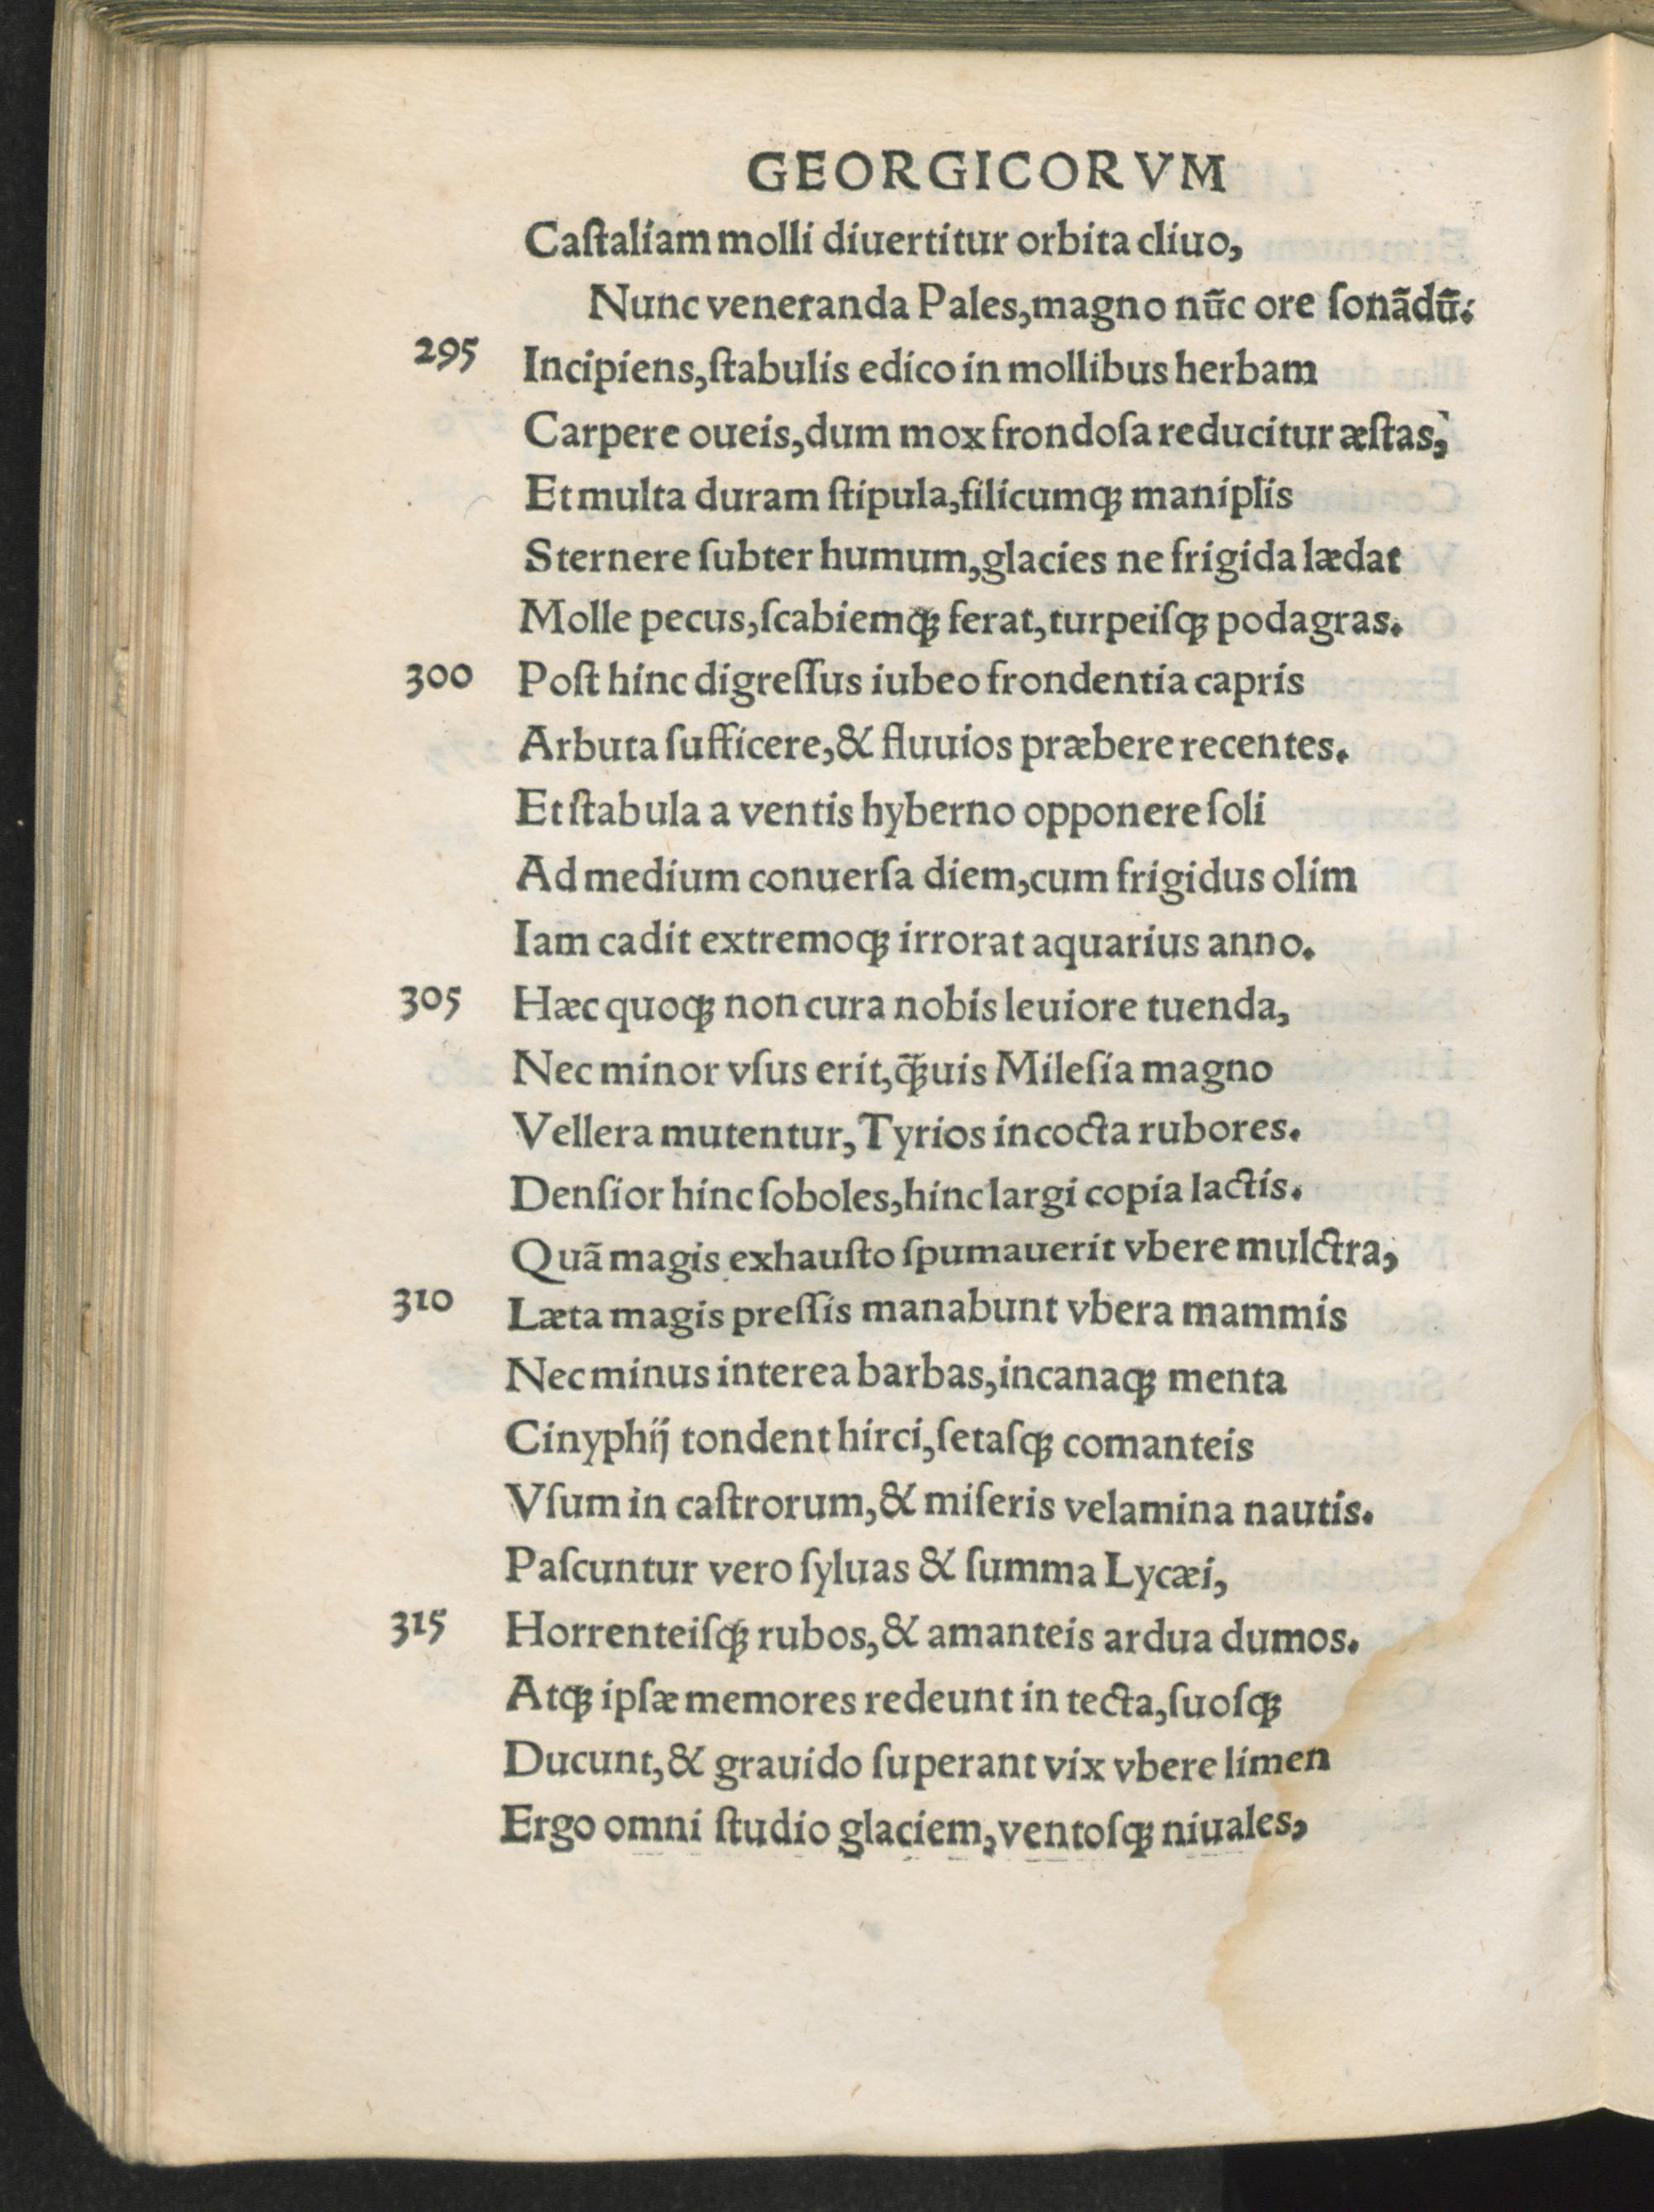 GEORGICORVM
Caſtaliam molli diuertitur orbita cliuo,
Nunc veneranda Pales, magno nũc ore ſonãdũ:
295 Incipiens, ſtabulis edico in mollibus herbam
Carpere oueis, dum mox frondoſa reducitur æſtas,
Et multa duram ſtipula, filicumqꝫ maniplis
Sternere ſubter humum, glacies ne frigida lædat
Molle pecus, ſcabiemqꝫ ferat, turpeiſqꝫ podagras.
300 Poſt hinc digreſſus iubeo frondentia capris
Arbuta ſufficere, & fluuios præbere recentes.
Et ſtabula a ventis hyberno opponere ſoli
Ad medium conuerſa diem, cum frigidus olim
Iam cadit extremoqꝫ irrorat aquarius anno.
305 Hæc quoqꝫ non cura nobis leuiore tuenda,
Nec minor vſus erit, q̃ꝫuis Mileſia magno
Vellera mutentur, Tyrios incocta rubores.
Denſior hinc ſoboles, hinc largi copia lactis.
Quã magis exhauſto ſpumauerit vbere mulctra,
310 Læta magis preſſis manabunt vbera mammis
Nec minus interea barbas, incanaqꝫ menta
Cinyphij tondent hirci, ſetaſqꝫ comanteis
Vſum in caſtrorum, & miſeris velamina nautis.
Paſcuntur vero ſyluas & ſumma Lycæi,
315 Horrenteiſqꝫ rubos, & amanteis ardua dumos.
Atqꝫ ipſæ memores redeunt in tecta, ſuoſqꝫ
Ducunt, & grauido ſuperant vix vbere limen
Ergo omni ſtudio glaciem, ventoſqꝫ niuales,